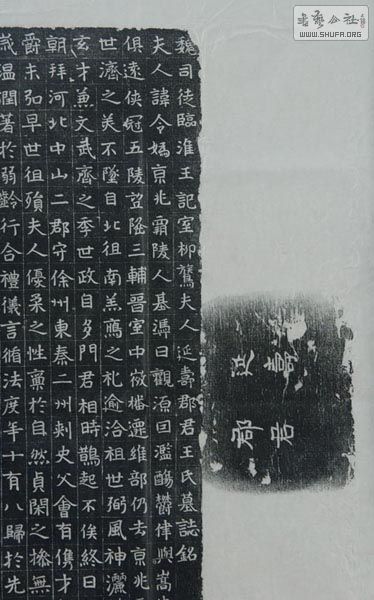 魏司徒臨淮王記室柳鷟夫人延壽郡君王氏墓誌銘
夫人諱令媯京兆霸陵人基馮曰觀源曰濫觴鬱律與嵩
俱遠俠冠五陵望隆三輔晉室中微播遷雍部仍去京兆
世濟之美不墜自北徂南羔鴈之礼逾洽祖世弼風神灑
玄才兼文武齊之季世政自多門君相時鵲起不俟終日
朝拜河北中山二郡守徐州東秦二州刾史父會有儁才
爵未弘早世徂殞夫人優柔之性稟於自然貞閑之操無
溫潤著於弱齡行合禮儀言循法度年十有八歸於先
延壽
郡君
書藝公社
WWW.SHUFA.ORG